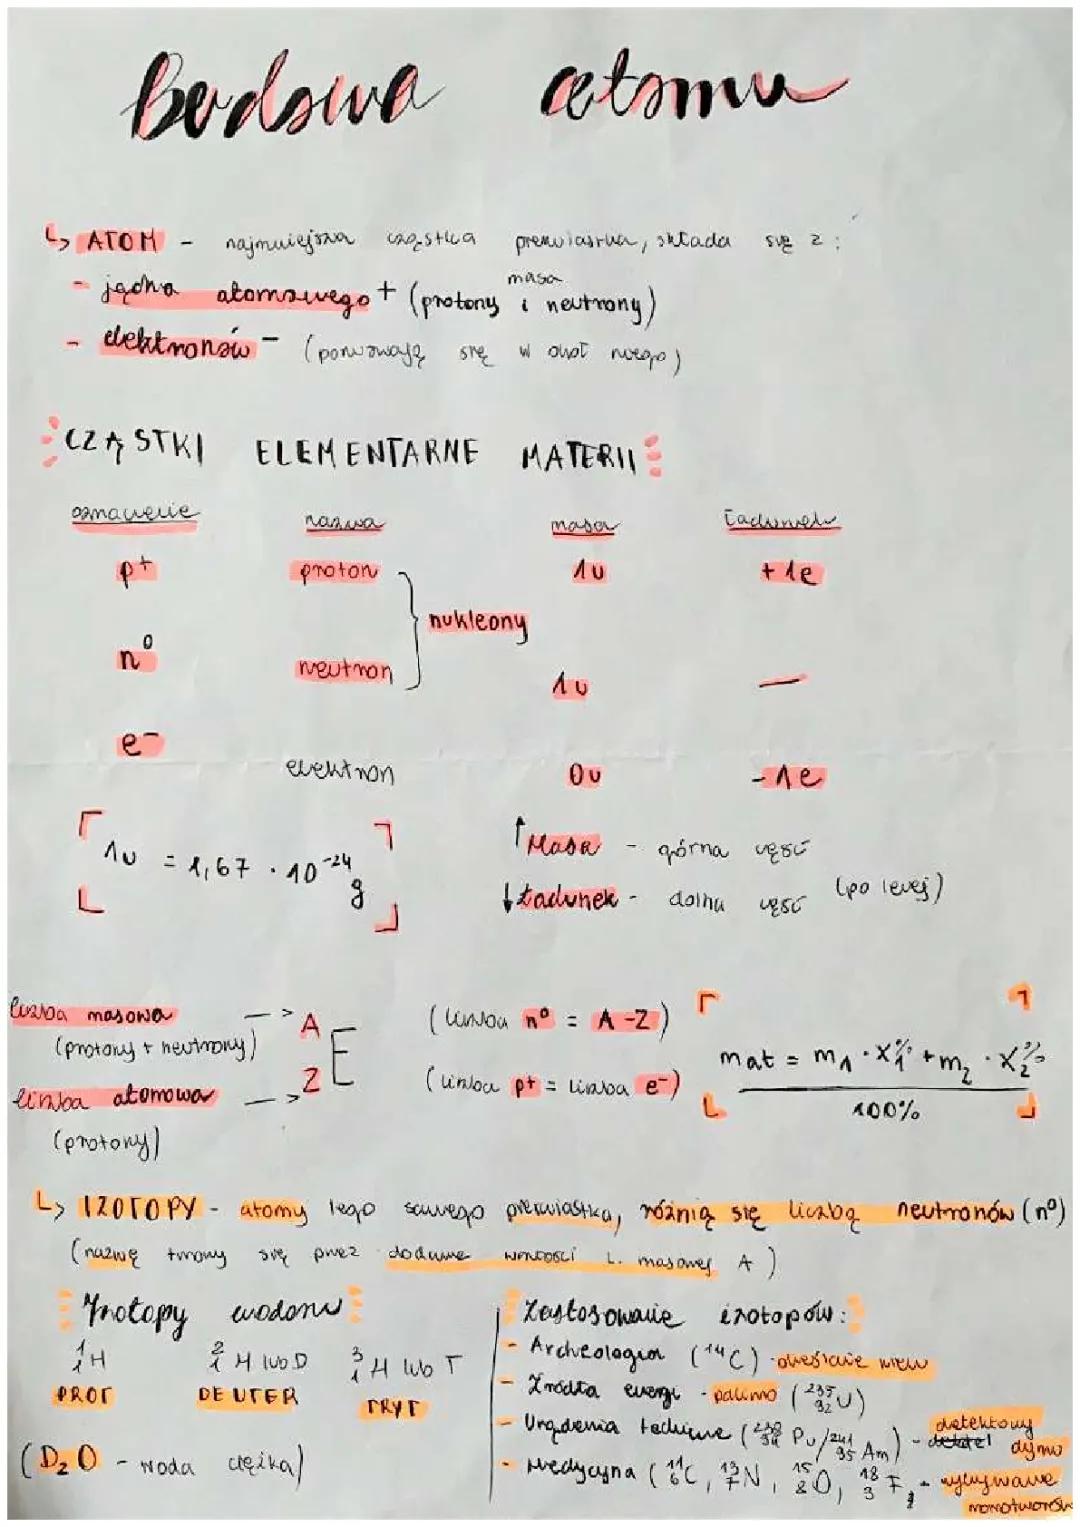 Budowa atomu
↳ ATOM - najmniejsza cząstka pierwiastka, składa się z:
- jądra atomowego + (protony i neutrony)
masa
- elektronów - (poruszają się w okół niego)
CZĄSTKI ELEMENTARNE MATERII
oznaczenie nazwa masa ładunek
p⁺ proton 1u +1e
nukleony
n⁰ neutron 1u —
e⁻ elektron 0u -1e
1u = 1,67 · 10⁻²⁴ g
↑ Masa - górna część
↓ Ładunek - dolna część (po lewej)
liczba masowa —> A
(protony + neutrony)
E
liczba atomowa —> Z
(protony)
(liczba n⁰ = A-Z)
(liczba p⁺ = liczba e⁻)
mat = m₁ · X₁% + m₂ · X₂%
100%
↳ IZOTOPY - atomy tego samego pierwiastka, różnią się liczbą neutronów (n⁰)
(nazwę tworzy się przez dodanie wartości L. masowej A)
Izotopy wodoru
¹₁H ²₁H lub D ³₁H lub T
PROT DEUTER TRYT
(D₂O - woda ciężka)
Zastosowanie izotopów:
- Archeologia (¹⁴C) - określanie wieku
- Źródła energi - paliwo (²³⁵₉₂U)
- Urządzenia techiczne (²³⁸₉₄Pu/²⁴¹₉₅Am) - detektowy dymu
- Medycyna (¹¹₆C, ¹³₇N, ¹⁵₈O, ¹⁸₃F, - wykrywanie
nowotworów